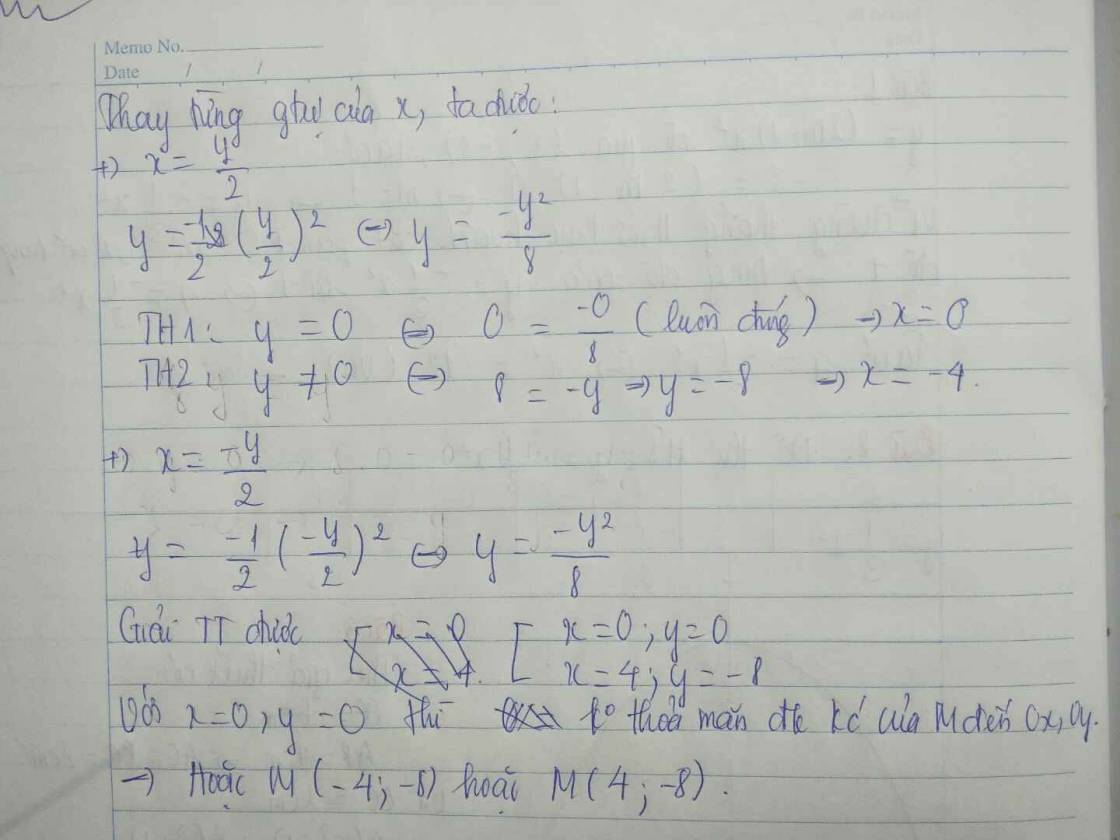 Memo No.
Date / /
Thay từng gtrị của x, ta được:
+) x = y/2
y = -1/2 (y/2)² ⇔ y = -y²/8
TH1: y = 0 ⇔ 0 = -0/8 (luôn đúng) → x = 0
TH2: y ≠ 0 ⇔ 8 = -y ⇒ y = -8 ⇒ x = -4.
+) x = -y/2
y = -1/2 (-y/2)² ⇔ y = -y²/8
Giải TT được [ x = 0; y = 0
x = 4; y = -8
Với x = 0; y = 0 thì ko thoả mãn đk k/c của M đến Ox, Oy.
→ Hoặc M (-4; -8) hoặc M (4; -8).